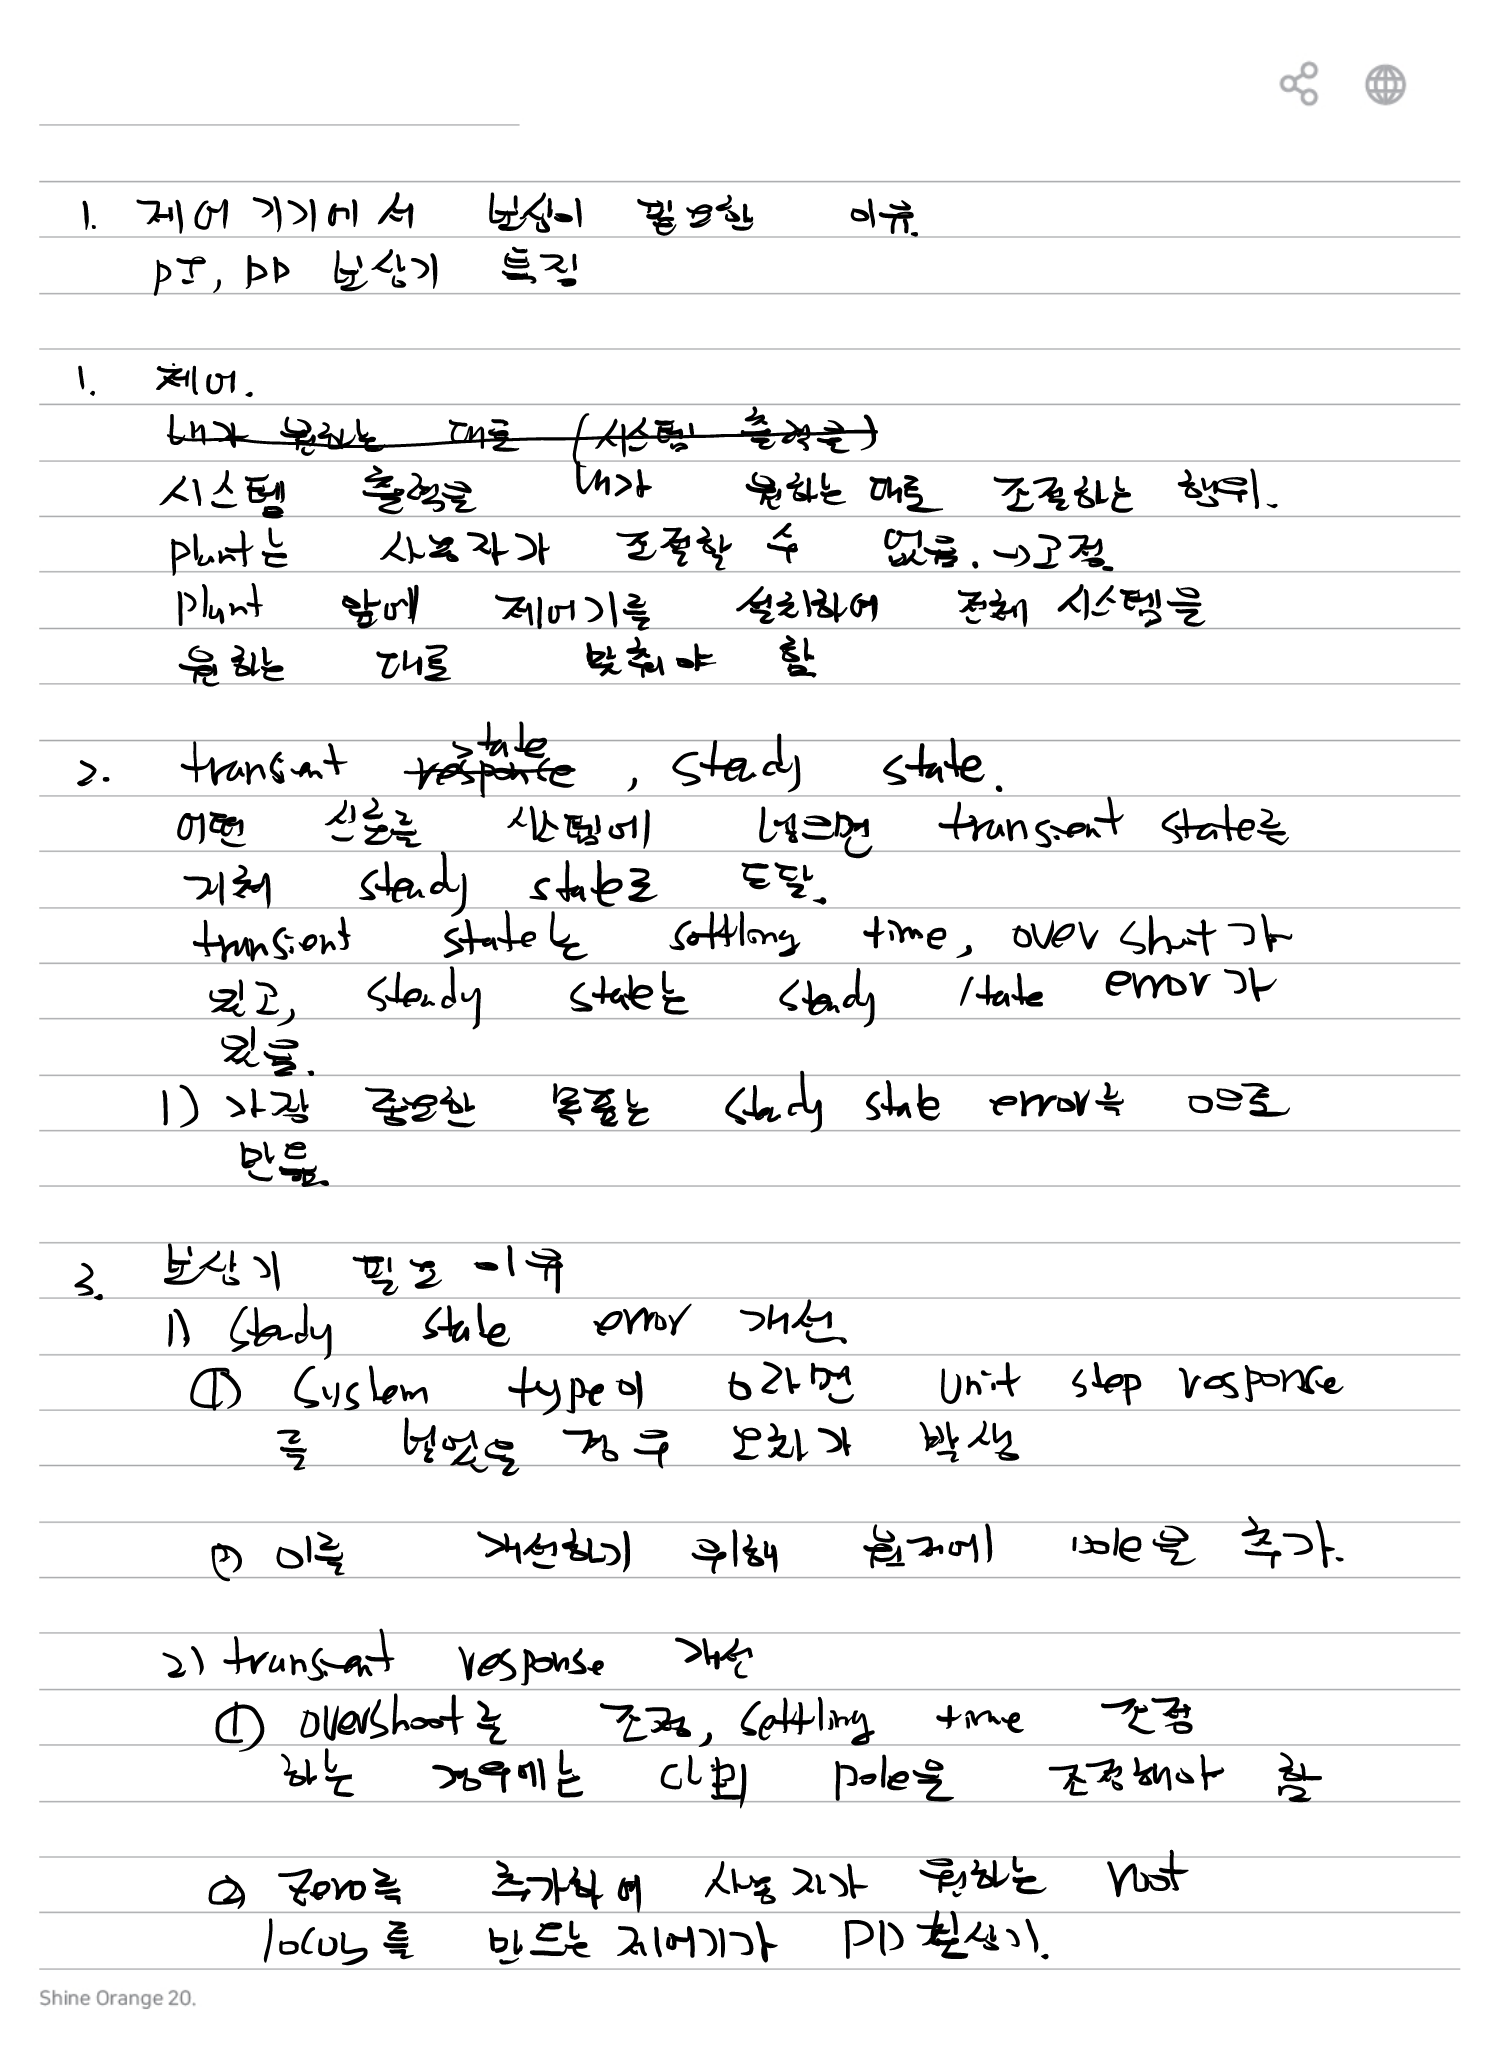 1. 제어 기기에서 보상이 필요한 이유.
PI, PD 보상기 특징
1. 제어.
내가 원하는 대로 (시스템 출력을)
시스템 출력을 내가 원하는 대로 조절하는 행위.
plant는 사용자가 조절할 수 없음. →고정.
plant 앞에 제어기를 설치하여 전체 시스템을
원하는 대로 맞춰야 함
2. transient response state, steady state.
어떤 신호를 시스템에 넣으면 transient state를
거쳐 steady state로 도달.
transient state는 settling time, over shoot가
있고, steady state는 steady state error가
있음.
1) 가장 중요한 목표는 steady state error를 0으로
만듦.
3. 보상기 필요 이유
1) steady state error 개선
① system type이 0라면 unit step response
를 넣었을 경우 오차가 발생
② 이를 개선하기 위해 원점에 pole을 추가.
2) transient response 개선
① overshoot를 조정, settling time 조정
하는 경우에는 pole을 조정해야 함
② zero를 추가하여 사용자가 원하는 root
locus를 만드는 제어기가 PD 보상기.
Shine Orange 20.